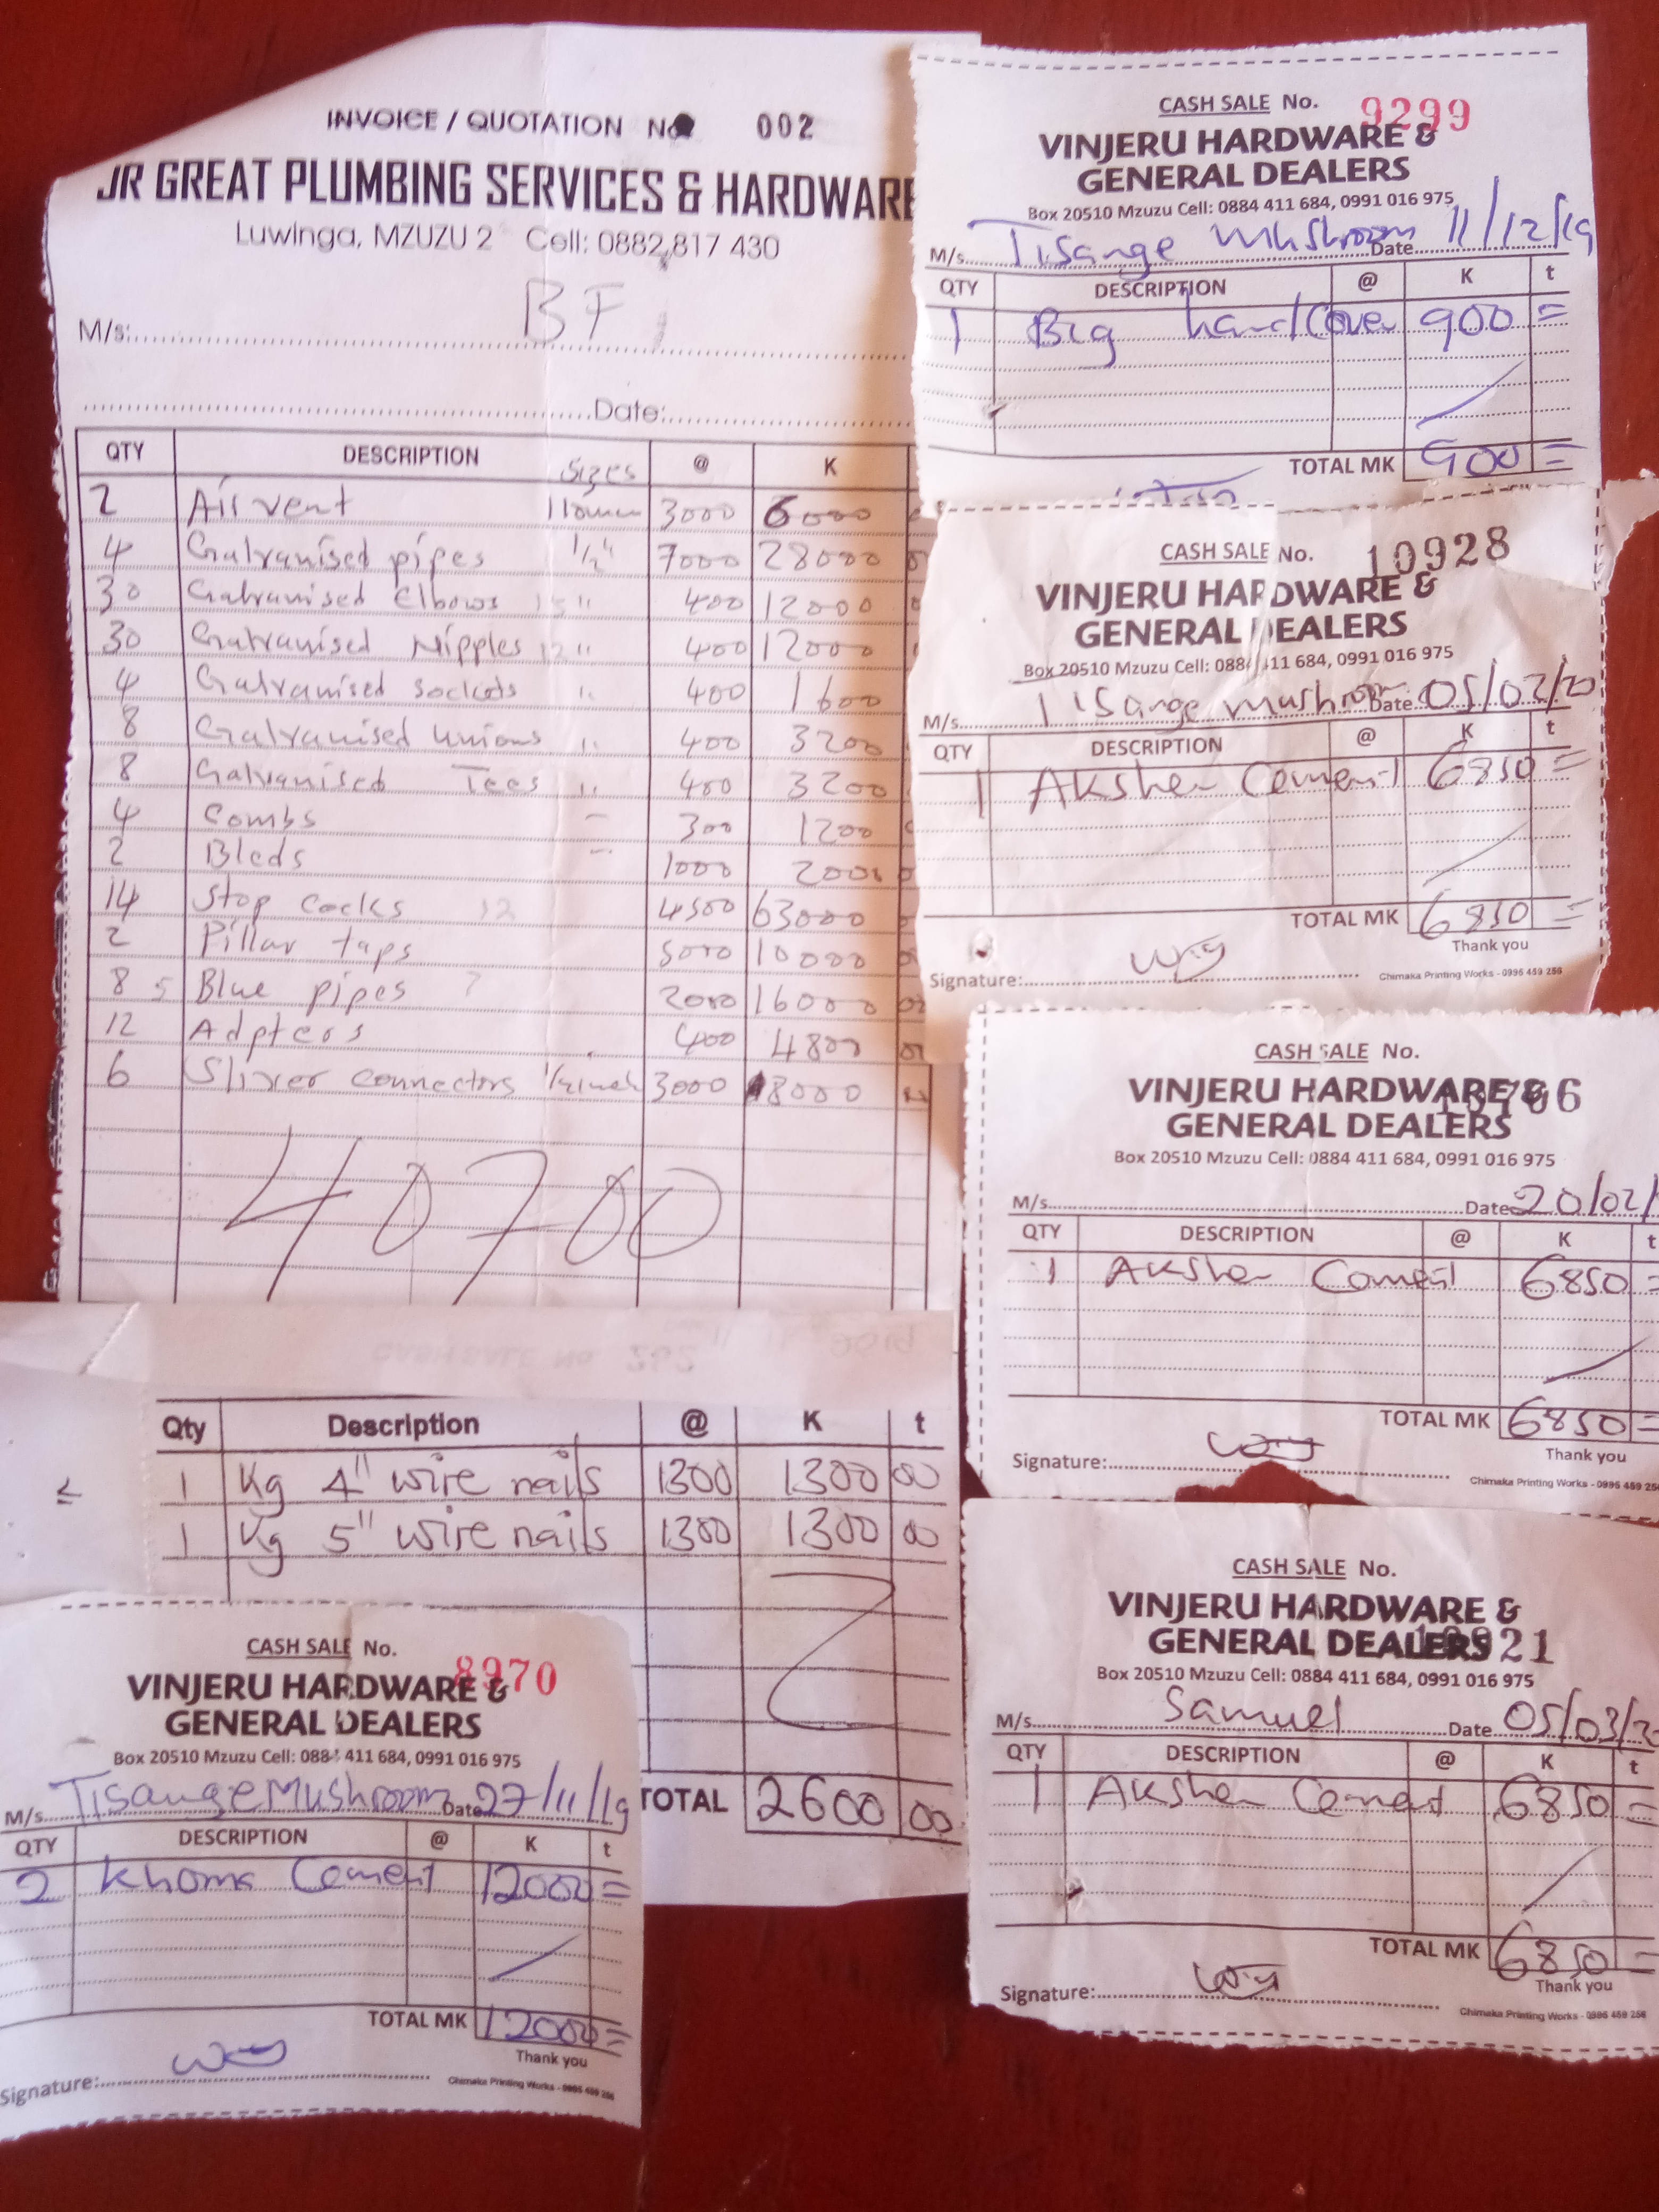 INVOICE / QUOTATION No 002
JR GREAT PLUMBING SERVICES & HARDWARE
Luwinga, MZUZU 2 Cell: 0882 817 430
M/s: BF
Date:
QTY DESCRIPTION Sizes @ K
2 Air vent 110mm 3000 6000
4 Galvanised pipes 1/2" 7000 28000
30 Galvanised Elbows 400 12000
30 Galvanised Nipples 400 12000
4 Galvanised sockets 400 1600
8 Galvanised Unions 400 3200
8 Galvanised Tees 400 3200
4 Combs 300 1200
2 Bleds 1000 2000
14 Stop cocks 12 4500 63000
2 Pillar taps 5000 10000
8 5 Blue pipes 2000 16000
12 Adpters 400 4800
6 Sliver connectors 1/2 inch 3000 18000
40700
Qty Description @ K t
1 Kg 4" wire nails 1300 1300 00
1 Kg 5" wire nails 1300 1300 00
TOTAL 2600 00
CASH SALE No. 8970
VINJERU HARDWARE &
GENERAL DEALERS
Box 20510 Mzuzu Cell: 0884 411 684, 0991 016 975
M/s Tisange Mushroom Date 27/11/19
QTY DESCRIPTION @ K t
2 Khoma Cement 12000 =
TOTAL MK 12000 =
Thank you
Signature:
Chimaka Printing Works - 0995 459 256
CASH SALE No. 9299
VINJERU HARDWARE &
GENERAL DEALERS
Box 20510 Mzuzu Cell: 0884 411 684, 0991 016 975
M/s Tisange Mushroom Date 11/12/19
QTY DESCRIPTION @ K t
1 Big hand Cover 900 =
TOTAL MK 900 =
CASH SALE No. 10928
VINJERU HARDWARE &
GENERAL DEALERS
Box 20510 Mzuzu Cell: 0884 411 684, 0991 016 975
M/s Tisange Mushroom Date 05/02/20
QTY DESCRIPTION @ K t
1 Akshar Cement 6850 =
TOTAL MK 6850 =
Thank you
Signature:
Chimaka Printing Works - 0995 459 256
CASH SALE No.
VINJERU HARDWARE &
GENERAL DEALERS
Box 20510 Mzuzu Cell: 0884 411 684, 0991 016 975
M/s Date 20/02/
QTY DESCRIPTION @ K t
1 Akshar Cement 6850 =
TOTAL MK 6850 =
Thank you
Signature:
Chimaka Printing Works - 0995 459 256
CASH SALE No.
VINJERU HARDWARE &
GENERAL DEALERS
Box 20510 Mzuzu Cell: 0884 411 684, 0991 016 975
M/s Samuel Date 05/03/20
QTY DESCRIPTION @ K t
1 Akshar Cement 6850 =
TOTAL MK 6850 =
Thank you
Signature:
Chimaka Printing Works - 0995 459 256